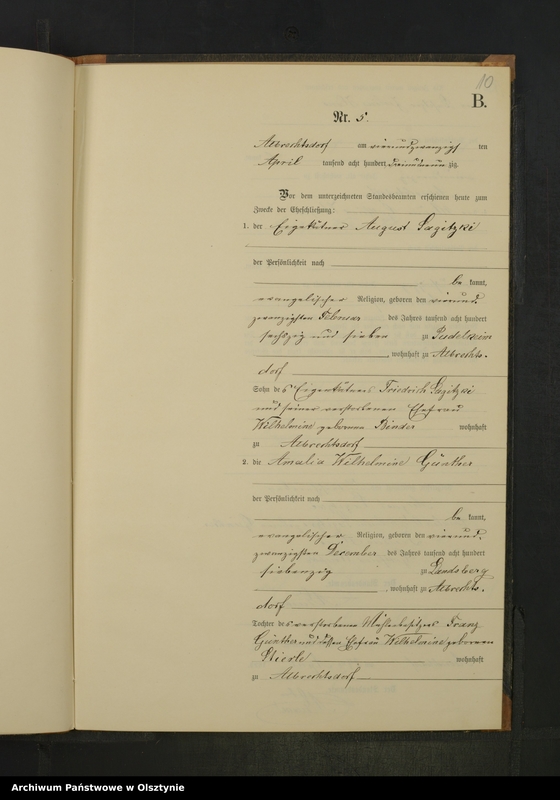 10
B.
Nr. 5.
Albrechtsdorf am vierundzwanzigs ten
April tausend acht hundert dreiundneun zig.
Vor dem unterzeichneten Standesbeamten erschienen heute zum
Zwecke der Eheschließung:
1. der Eigenkätner August Sagitzki
der Persönlichkeit nach
be kannt,
evangelischer Religion, geboren den vierund-
zwanzigsten Februar des Jahres tausend acht hundert
sechszig und sieben zu
, wohnhaft zu Albrechts-
dorf
Sohn des Eigenkätners Friedrich Sagitzki
und seiner verstorbenen Ehefrau
Wilhelmine geborenen Binder wohnhaft
zu Albrechtsdorf
2. die Amalie Wilhelmine Günther
der Persönlichkeit nach
be kannt,
evangelischer Religion, geboren den vierund-
zwanzigsten December des Jahres tausend acht hundert
siebenzig zu Landsberg
, wohnhaft zu Albrechts-
dorf
Tochter des verstorbenen Franz
Günther und dessen Ehefrau Wilhelmine geborenen
wohnhaft
zu Albrechtsdorf
Archiwum Państwowe w Olsztynie